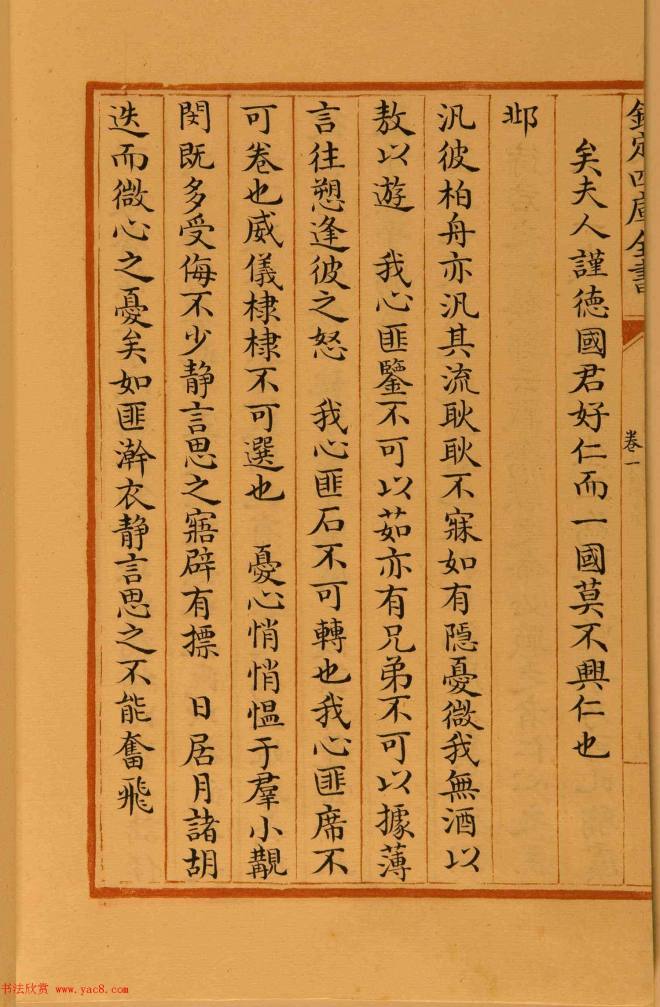 欽定四庫全書
卷一
矣夫人謹徳國君好仁而一國莫不興仁也
邶
汎彼柏舟亦汎其流耿耿不寐如有隱憂微我無酒以
敖以遊 我心匪鑒不可以茹亦有兄弟不可以據薄
言往愬逢彼之怒 我心匪石不可轉也我心匪席不
可卷也威儀棣棣不可選也 憂心悄悄愠于羣小覯
閔既多受侮不少静言思之寤辟有摽 日居月諸胡
迭而微心之憂矣如匪澣衣静言思之不能奮飛
书法欣赏 www.yac8.com